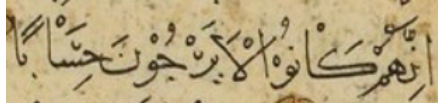 اِنَّهُمْ كَانُوْا لَا يَرْجُوْنَ حِسَابًا